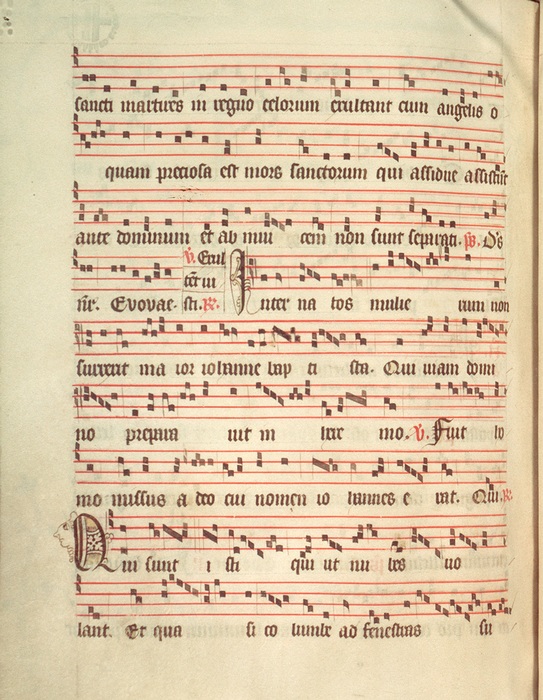 sancti martires in regno celorum exultant cum angelis o
quam preciosa est mors sanctorum qui assidue assistūt
ante dominum et ab inui cem non sunt separati. ps. Oēs
V. Exul
tēt iu
sti. R.
Evovae. Inter na tos mulie rum non
surrexit ma ior iohanne bap ti sta. Qui uiam domi
no prepara uit in here mo. V. Fuit ho
mo missus a deo cui nomen io hannes e rat. Qui. R.
Qui sunt i sti qui ut nu bes uo
lant. Et qua si co lumbe ad fenestras su